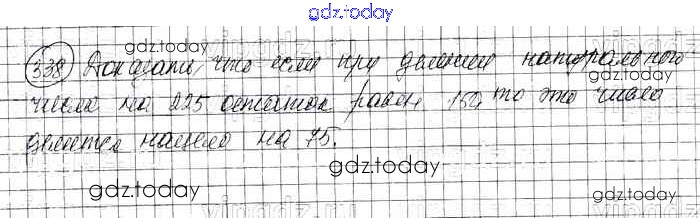 gdz.today
338 Доказать, что если при делении натурального
числа на 225 остаток равен 150, то это число
делится нацело на 75.
gdz.today
gdz.today
gdz.today
gdz.today
gdz.today